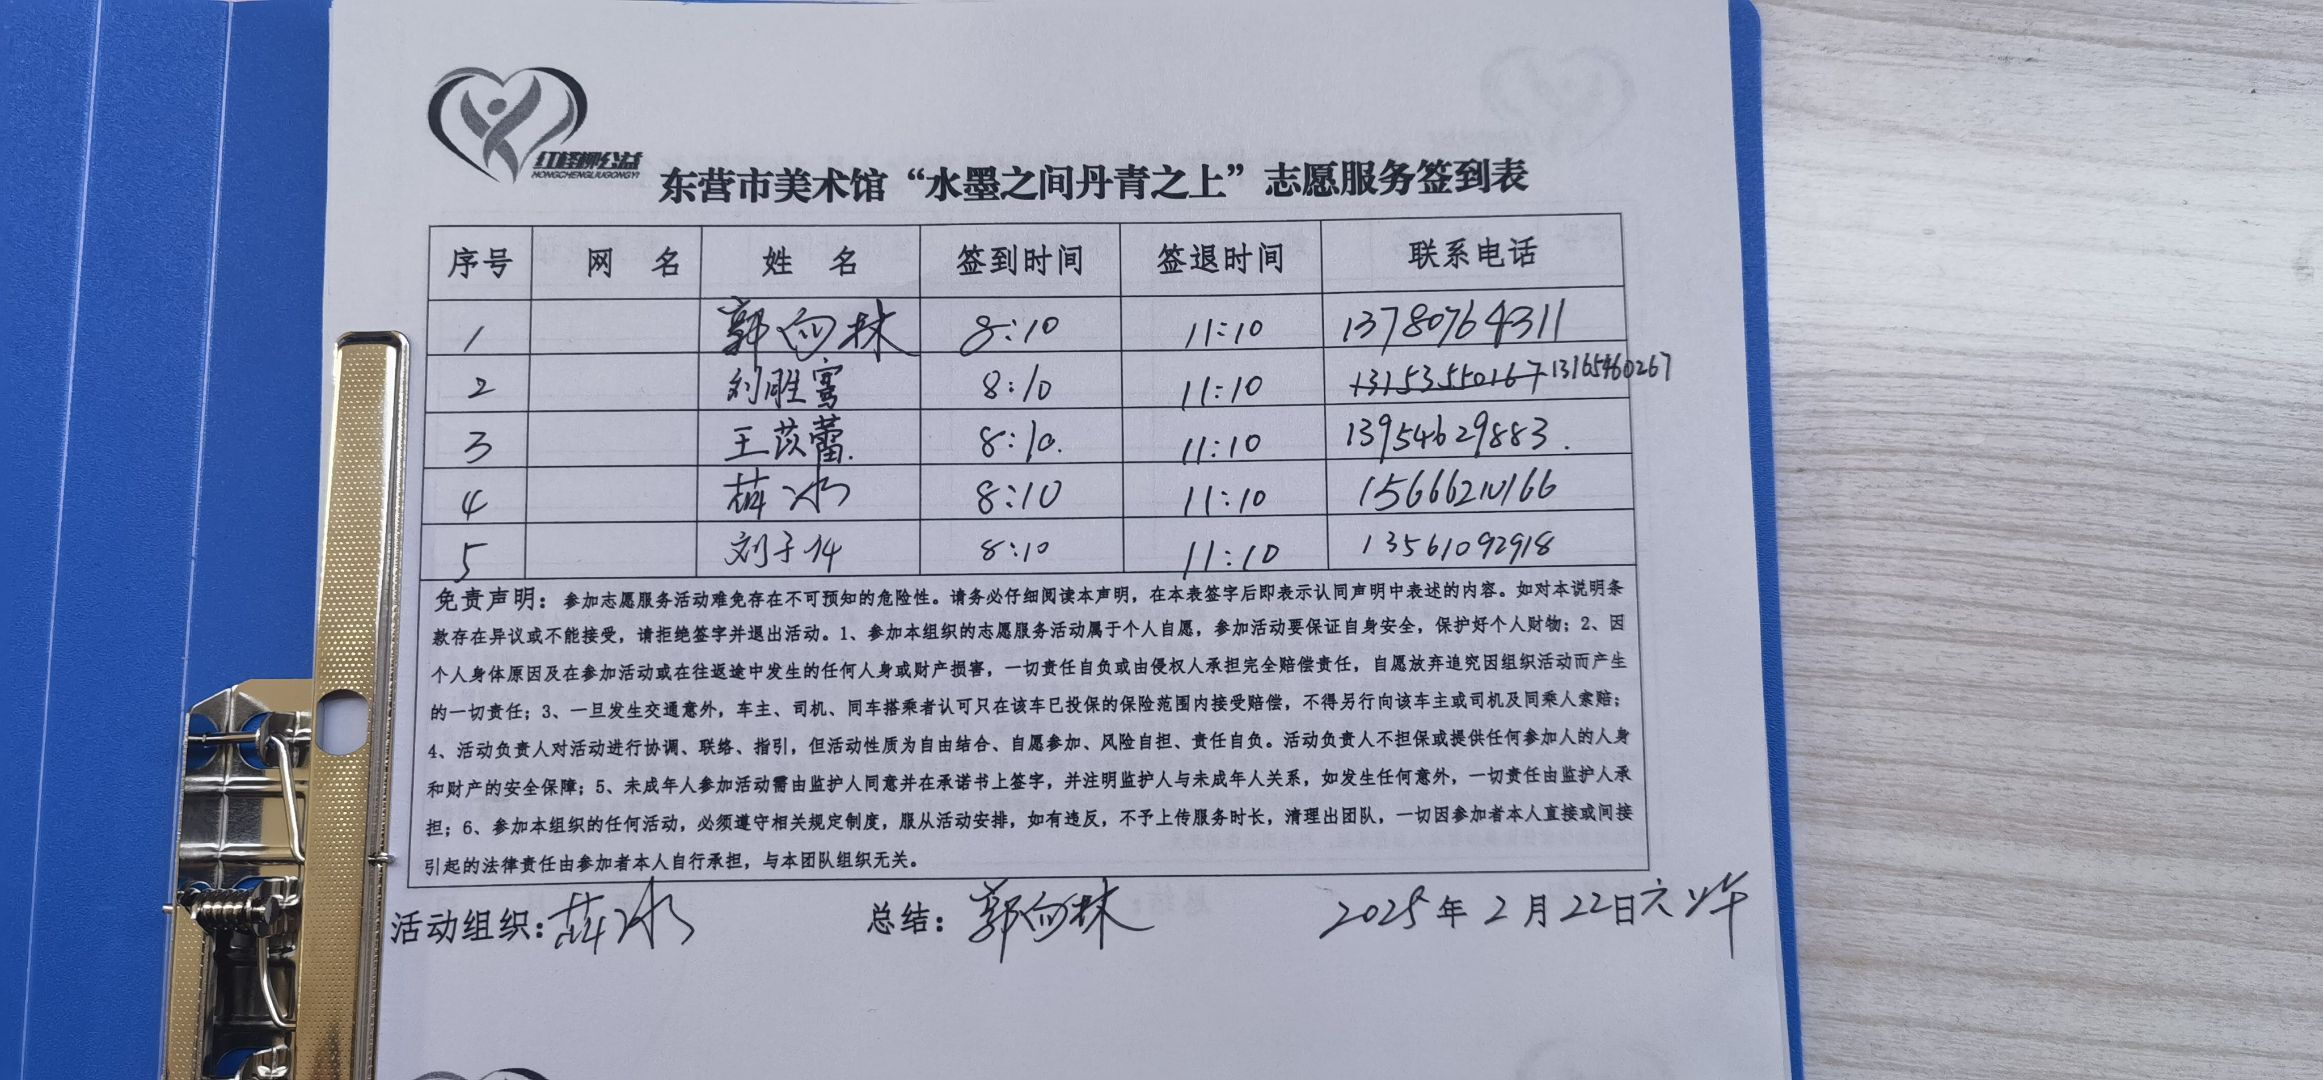 红柽柳公益
HONGCHENGLIUGONGYI
东营市美术馆“水墨之间丹青之上”志愿服务签到表
序号 网 名 姓 名 签到时间 签退时间 联系电话
1 郭向林 8:10 11:10 13780764311
2 刘胜 8:10 11:10 13153550167 13165460267
3 王苡蕾. 8:10. 11:10 13954629883.
4 薛冰 8:10 11:10 15666210166
5 刘子 8:10 11:10 13561092918
免责声明：参加志愿服务活动难免存在不可预知的危险性。请务必仔细阅读本声明，在本表签字后即表示认同声明中表述的内容。如对本说明条
款存在异议或不能接受，请拒绝签字并退出活动。1、参加本组织的志愿服务活动属于个人自愿，参加活动要保证自身安全，保护好个人财物；2、因
个人身体原因及在参加活动或在往返途中发生的任何人身或财产损害，一切责任自负或由侵权人承担完全赔偿责任，自愿放弃追究因组织活动而产生
的一切责任；3、一旦发生交通意外，车主、司机、同车搭乘者认可只在该车已投保的保险范围内接受赔偿，不得另行向该车主或司机及同乘人索赔；
4、活动负责人对活动进行协调、联络、指引，但活动性质为自由结合、自愿参加、风险自担、责任自负。活动负责人不担保或提供任何参加人的人身
和财产的安全保障；5、未成年人参加活动需由监护人同意并在承诺书上签字，并注明监护人与未成年人关系，如发生任何意外，一切责任由监护人承
担；6、参加本组织的任何活动，必须遵守相关规定制度，服从活动安排，如有违反，不予上传服务时长，清理出团队，一切因参加者本人直接或间接
引起的法律责任由参加者本人自行承担，与本团队组织无关。
活动组织：薛冰 总结：郭向林 2025年2月22日六上午